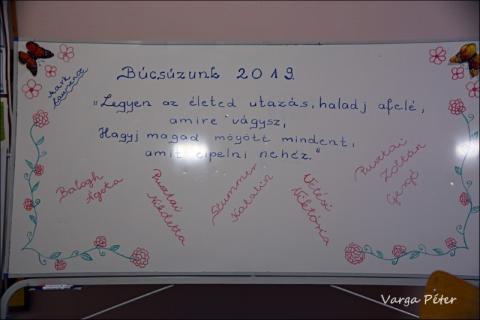 Búcsúzunk 2019
Mark
Lawrence
"Legyen az életed utazás, haladj afelé,
amire vágysz,
Hagyj magad mögött mindent,
amit cipelni nehéz."
Balogh
Ágota
Pusztai
Nikoletta
Stummer
Katalin
Vitézi
Viktória
Pusztai
Zoltán
Gergő
Varga Péter